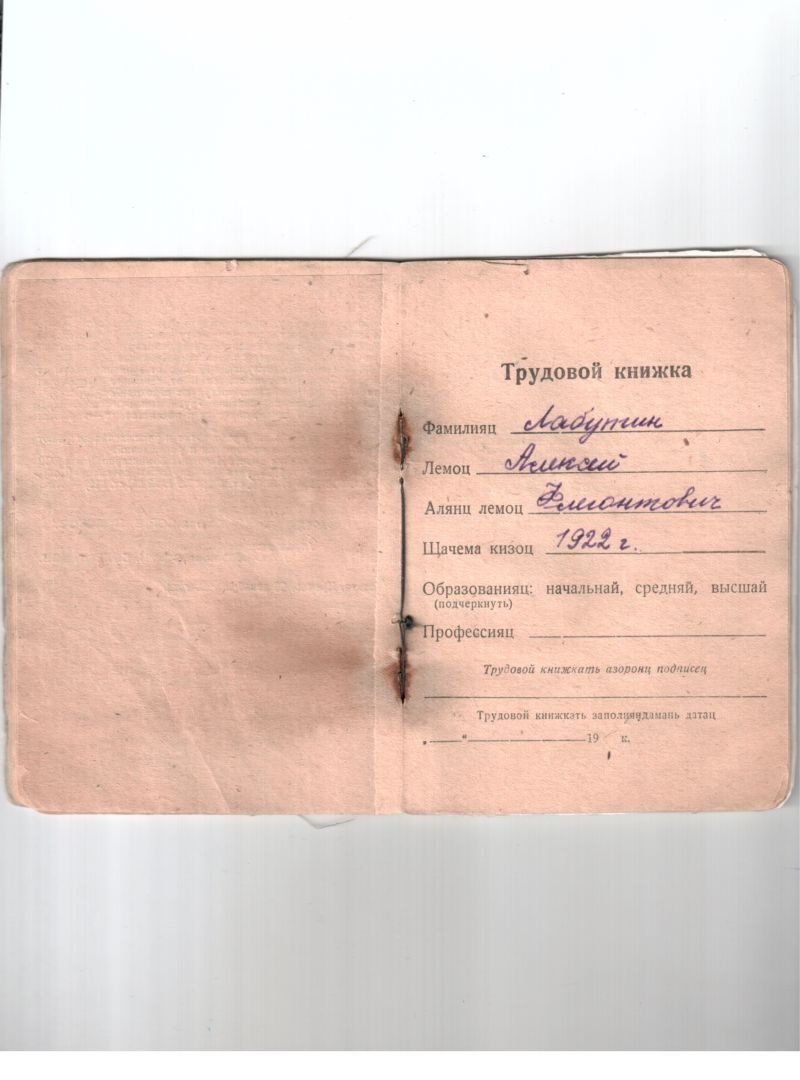 Трудовой книжка
Фамилияц Лабутин
Лемоц Алексей
Алянц лемоц Флегонтович
Щачема кизоц 1922 г.
Образованияц: начальнай, средняй, высшай
(подчеркнуть)
Профессияц
Трудовой книжкать азоронц подписец
Трудовой книжкать заполняндамань датац
„ “ 19 к.